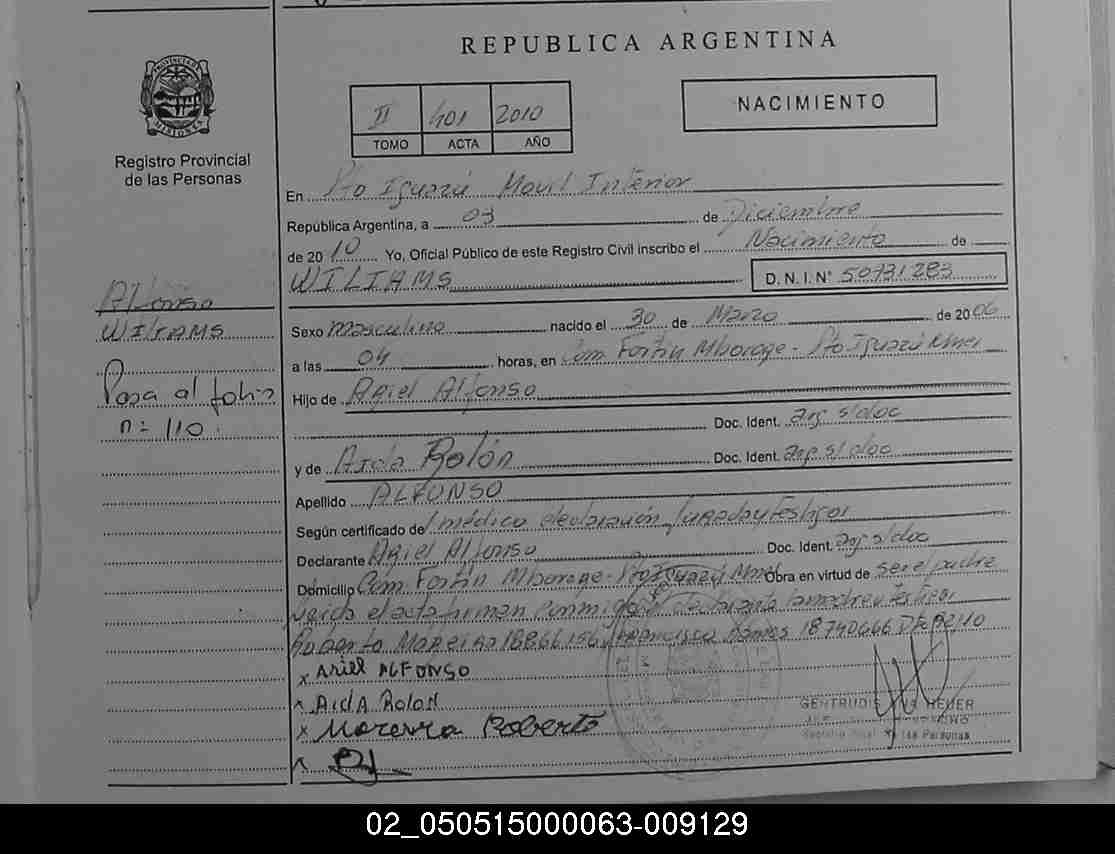 REPUBLICA ARGENTINA
PROVINCIA DE MISIONES
Registro Provincial
de las Personas
II 401 2010
TOMO ACTA AÑO
NACIMIENTO
En Pto Iguazú Movil Interior
República Argentina, a 03 de Diciembre
de 2010 Yo, Oficial Público de este Registro Civil inscribo el Nacimiento de
WILIAMS D.N.I.Nº 50731283
Alfonso
WILIAMS
Pasa al folio
nº 110
Sexo masculino nacido el 30 de Marzo de 2006
a las 04 horas, en Com Fortín Mborore - Pto Iguazú Mnes
Hijo de Ariel Alfonso
Doc. Ident. arg s/doc
y de Aida Rolón Doc. Ident. arg s/doc
Apellido ALFONSO
Según certificado de médico declaración jurada y testigos
Declarante Ariel Alfonso Doc. Ident. arg s/doc
Domicilio Com Fortín Mborore - Pto Iguazú Mnes Obra en virtud de ser el padre
leida el acta firman conmigo el declarante la madre y testigos
Roberto Moreira 18866156 y Francisco 18740666
x Ariel ALFONSO
x AidA Rolon
x Moreyra Roberto
x
GERTRUDIS HEUER
Registro Prov. de las Personas
02_050515000063-009129